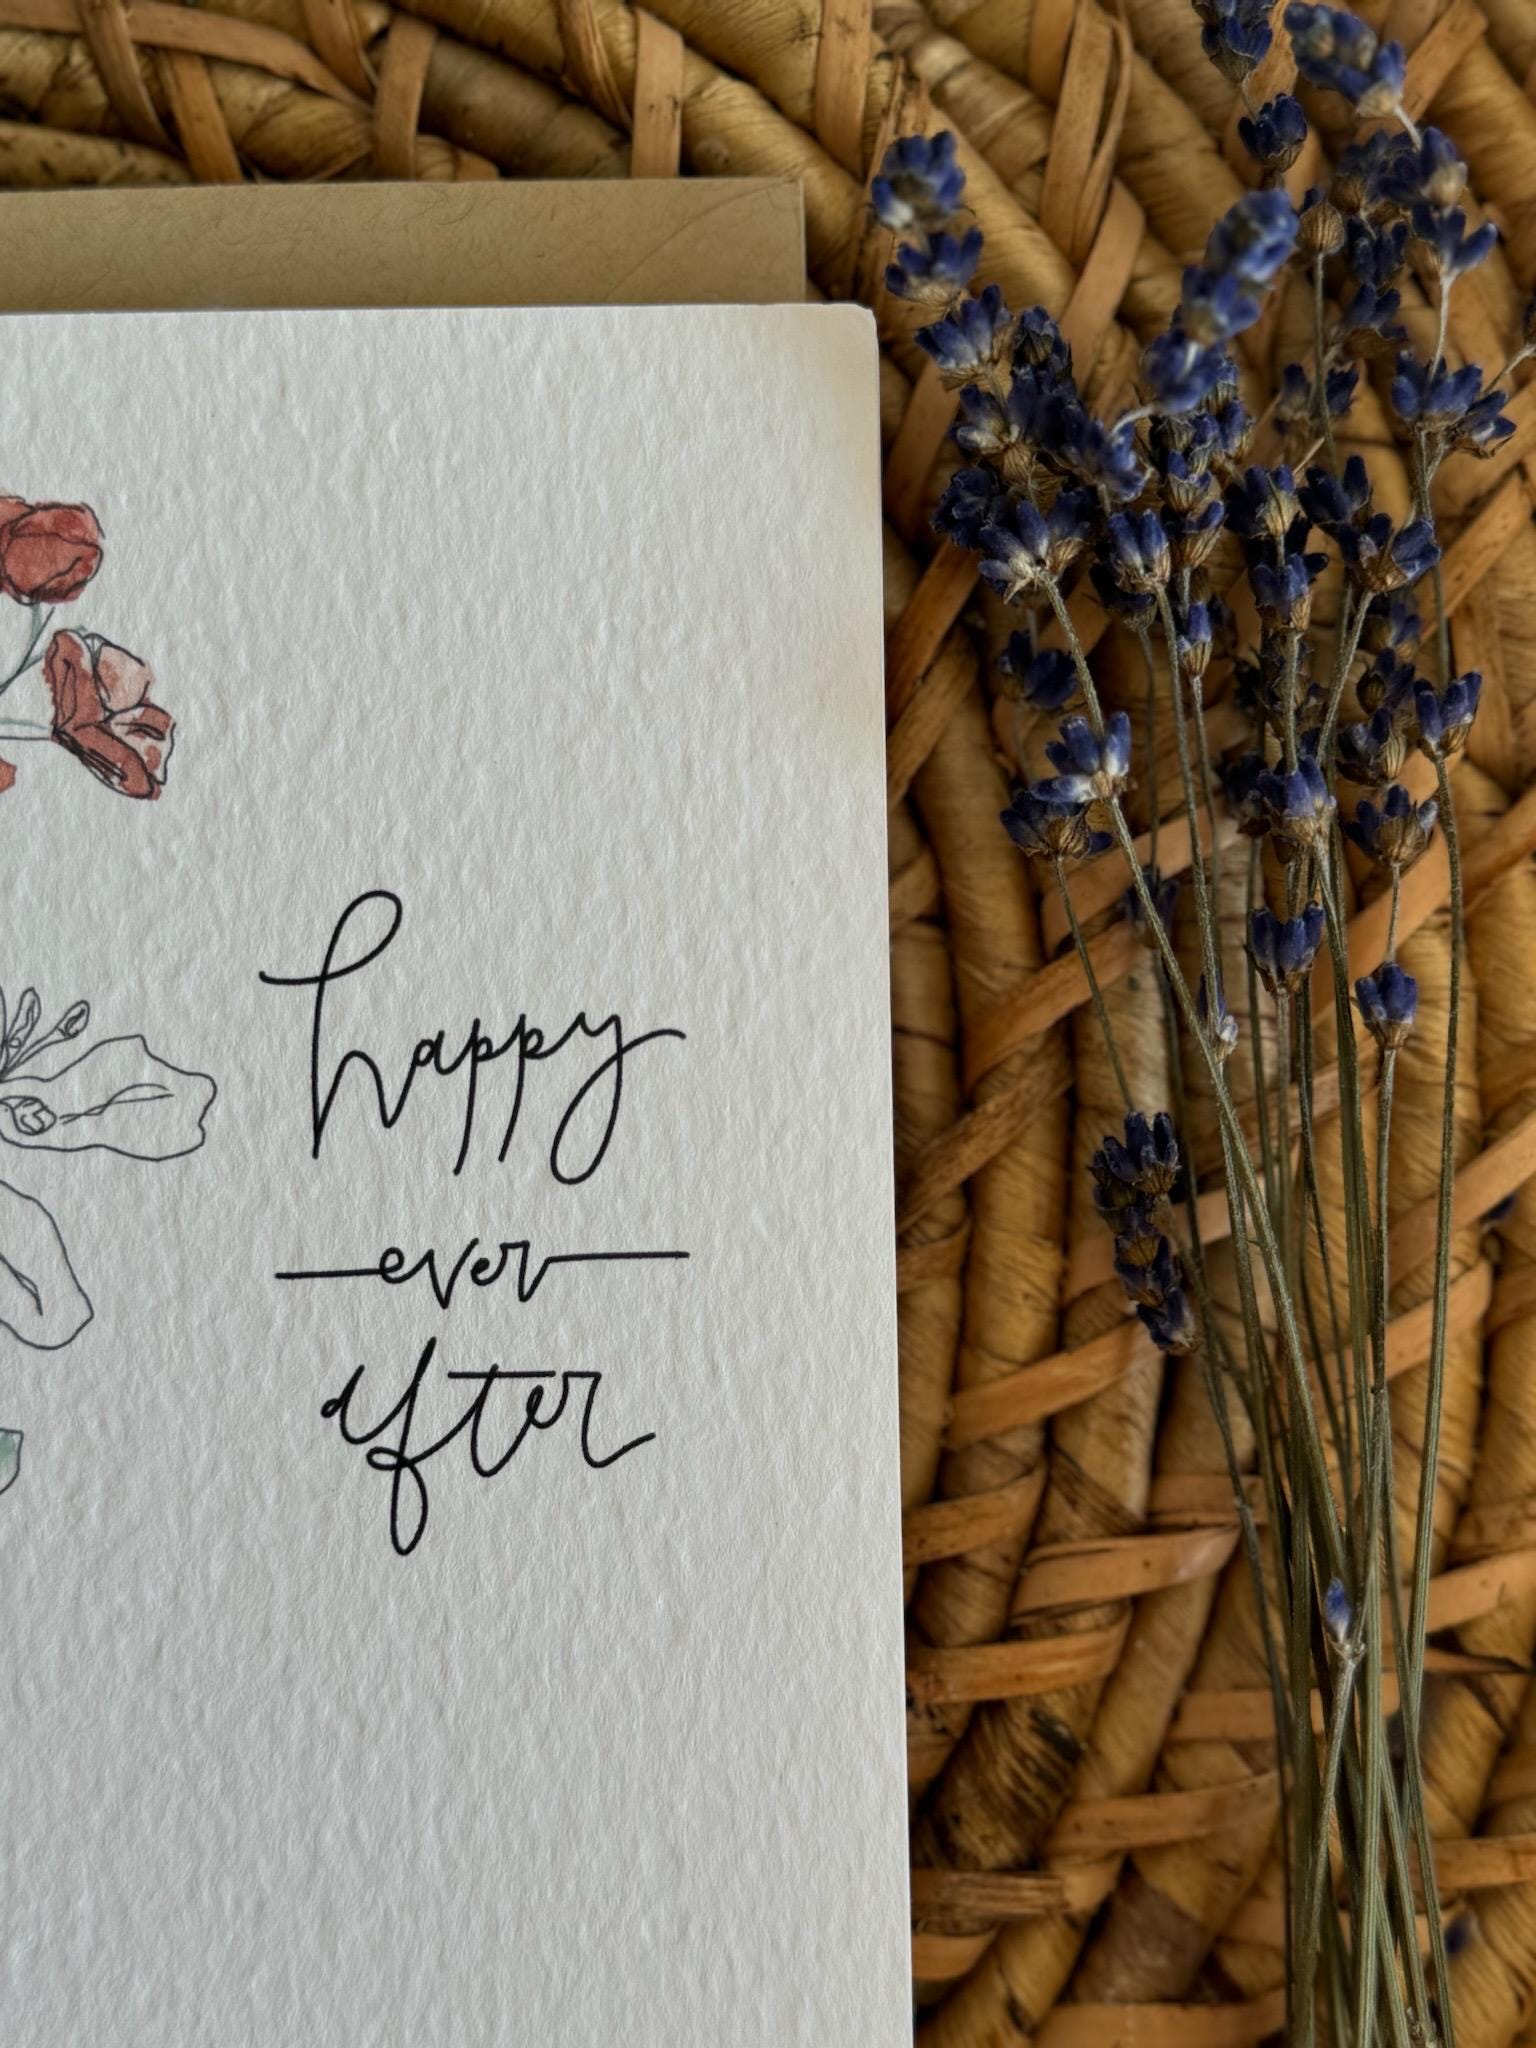 happy
ever
after